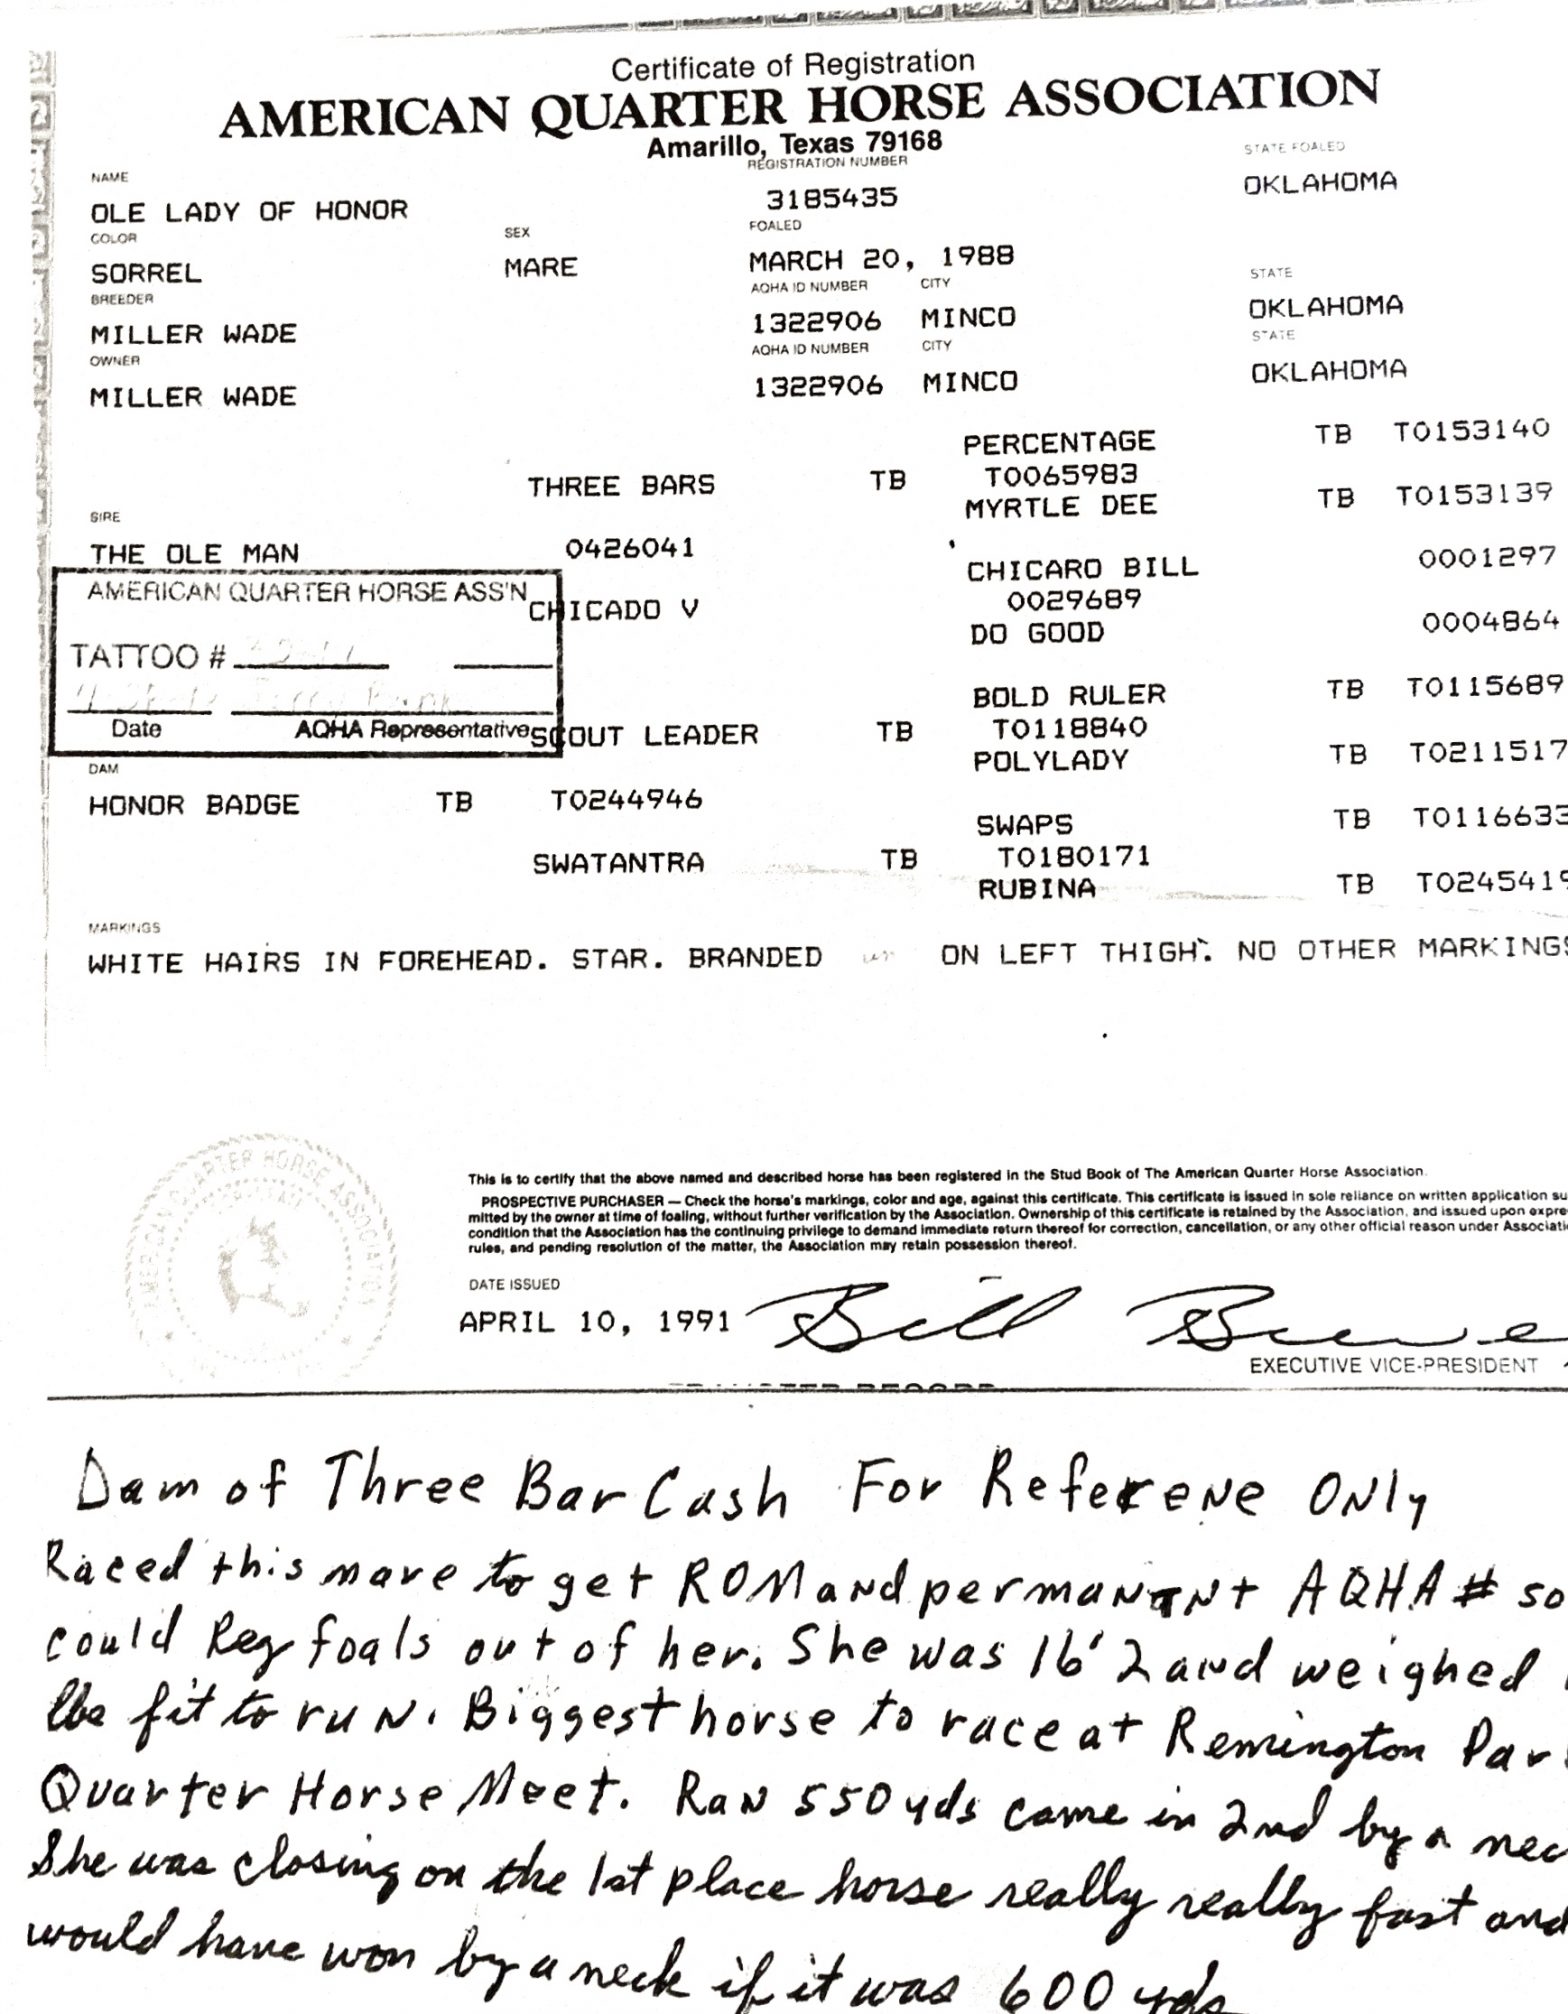 Certificate of Registration
AMERICAN QUARTER HORSE ASSOCIATION
Amarillo, Texas 79168
NAME REGISTRATION NUMBER STATE FOALED
OLE LADY OF HONOR 3185435 OKLAHOMA
COLOR SEX FOALED
SORREL MARE MARCH 20, 1988
BREEDER AQHA ID NUMBER CITY STATE
MILLER WADE 1322906 MINCO OKLAHOMA
OWNER AQHA ID NUMBER CITY STATE
MILLER WADE 1322906 MINCO OKLAHOMA
PERCENTAGE TB T0153140
THREE BARS TB T0065983
MYRTLE DEE TB T0153139
SIRE
THE OLE MAN 0426041
CHICARO BILL 0001297
CHICADO V 0029689
DO GOOD 0004864
AMERICAN QUARTER HORSE ASS'N
TATTOO #
Date AQHA Representative
BOLD RULER TB T0115689
SCOUT LEADER TB T0118840
POLYLADY TB T0211517
DAM
HONOR BADGE TB T0244946
SWAPS TB T0116633
SWATANTRA TB T0180171
RUBINA TB T0245419
MARKINGS
WHITE HAIRS IN FOREHEAD. STAR. BRANDED ON LEFT THIGH. NO OTHER MARKINGS
AMERICAN QUARTER HORSE ASSOCIATION
This is to certify that the above named and described horse has been registered in the Stud Book of The American Quarter Horse Association.
PROSPECTIVE PURCHASER — Check the horse's markings, color and age, against this certificate. This certificate is issued in sole reliance on written application su
mitted by the owner at time of foaling, without further verification by the Association. Ownership of this certificate is retained by the Association, and issued upon expre
condition that the Association has the continuing privilege to demand immediate return thereof for correction, cancellation, or any other official reason under Associati
rules, and pending resolution of the matter, the Association may retain possession thereof.
DATE ISSUED
APRIL 10, 1991 Bill
EXECUTIVE VICE-PRESIDENT
Dam of Three Bar Cash For Referene ONly
Raced this mare to get ROM and permanant AQHA # so
could Reg foals out of her. She was 16'2 and weighed
lbs fit to ruN. Biggest horse to race at Remington Par
Quarter Horse Meet. RaN 550 yds came in 2nd by a nec
She was closing on the 1st place horse really really fast and
would have won by a neck if it was 600 yds